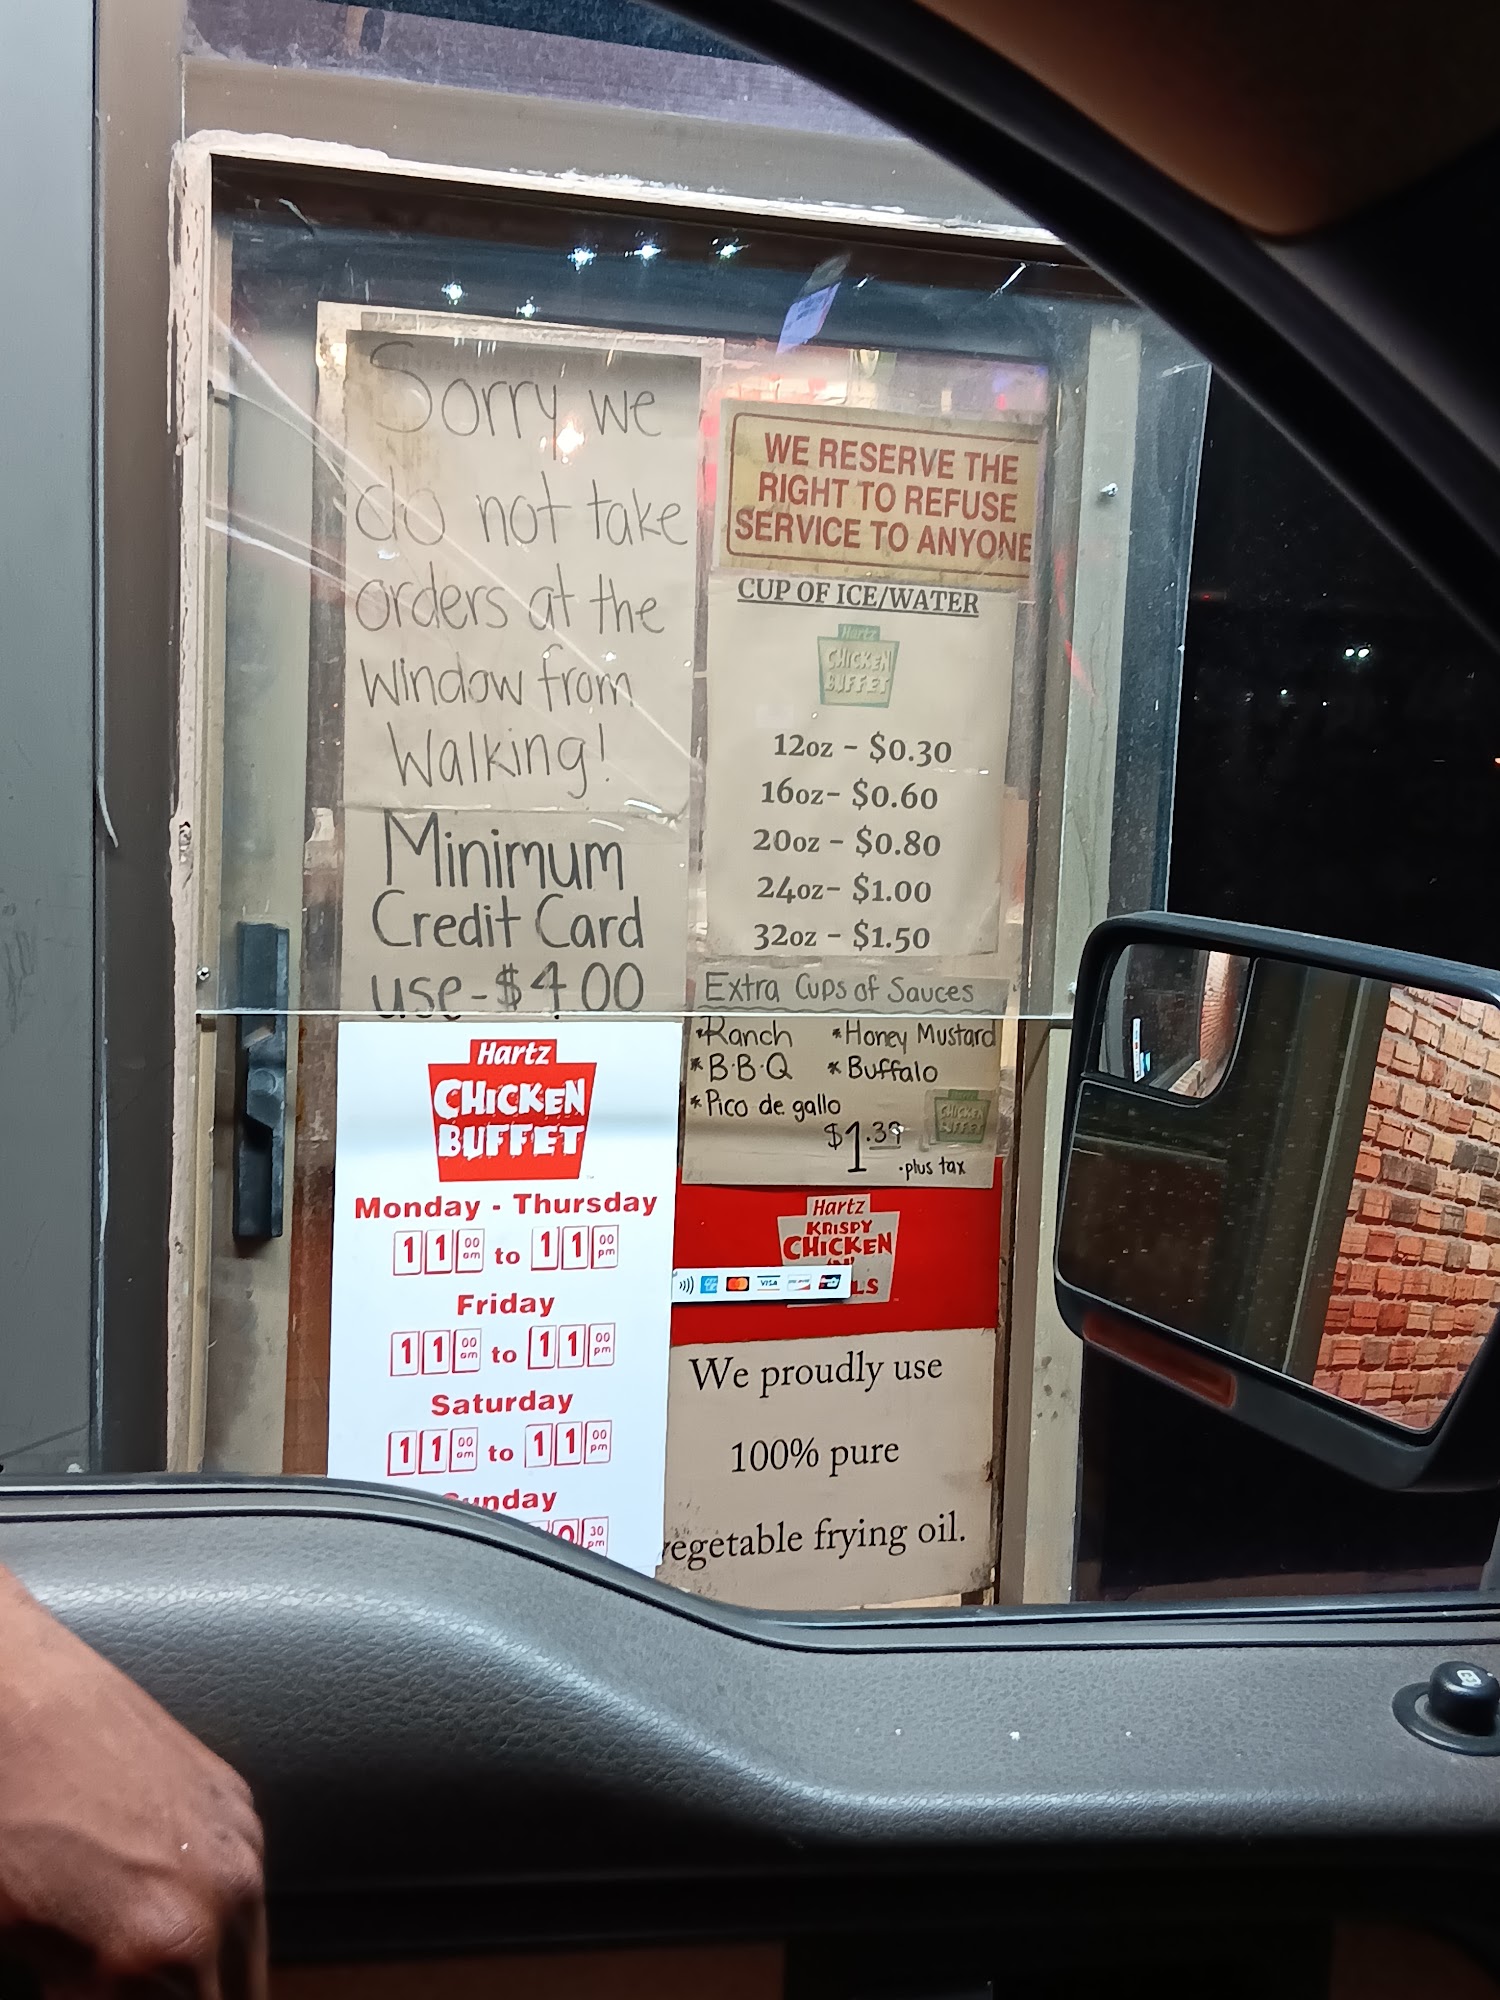 Sorry we
do not take
orders at the
window from
Walking!
Minimum
Credit Card
use - $4.00
Hartz
CHICKEN
BUFFET
Monday - Thursday
11 00 am to 11 00 pm
Friday
11 00 am to 11 00 pm
Saturday
11 00 am to 11 00 pm
30 pm
WE RESERVE THE
RIGHT TO REFUSE
SERVICE TO ANYONE
CUP OF ICE/WATER
Hartz
CHICKEN
BUFFET
12oz - $0.30
16oz- $0.60
20oz - $0.80
24oz- $1.00
32oz - $1.50
Extra Cups of Sauces
*Ranch *Honey Mustard
*B.B.Q *Buffalo
*Pico de gallo
CHICKEN
BUFFET
$1.39
.plus tax
Hartz
KRISPY
CHICKEN
VISA
We proudly use
100% pure
vegetable frying oil.